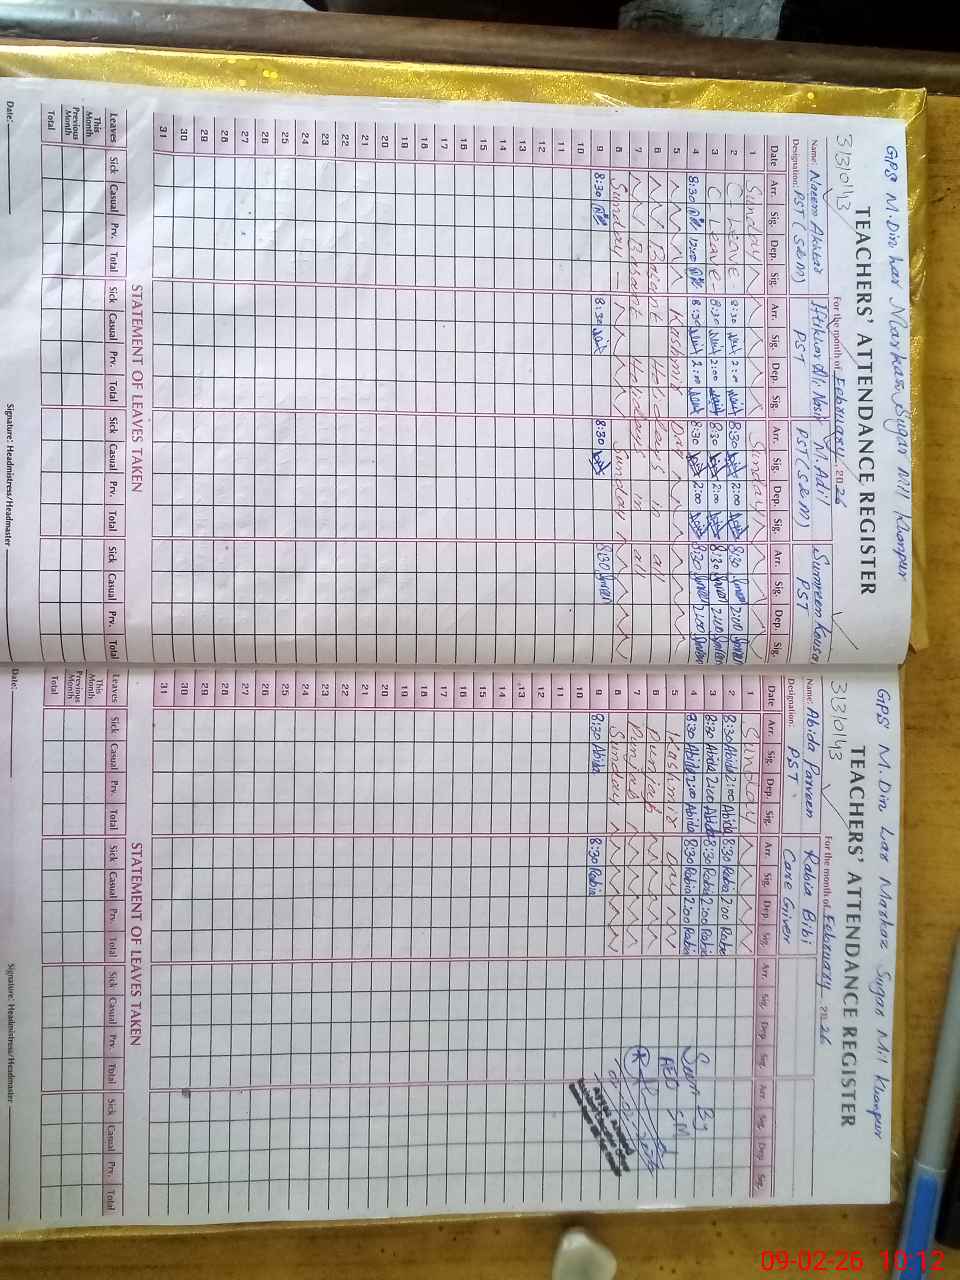 GPS M.Din Lar Markaz Sugar Mill Khanpur
31310143
TEACHERS' ATTENDANCE REGISTER
For the month of February 2026
Name: Naeem Akhtar Iftikhar Ali Nasir M. Adil Sumreen Kousar
Designation: PST (S&M) PST PST (S&M) PST
Date Arr. Sig. Dep. Sig. Arr. Sig. Dep. Sig. Arr. Sig. Dep. Sig. Arr. Sig. Dep. Sig.
1 Sunday Sunday
2 C Leave 8:30 2:00 8:30 2:00 8:30 2:00
3 C Leave 8:30 2:00 8:30 2:00 8:30 2:00
4 8:30 12:00 8:30 2:00 8:30 2:00 8:30 2:00
5 Kashmir Day
6 Basant Holidays in all
7 Basant Holidays in all
8 Sunday Sunday
9 8:30 8:30 8:30 8:30
10
11
12
13
14
15
16
17
18
19
20
21
22
23
24
25
26
27
28
29
30
31
STATEMENT OF LEAVES TAKEN
Leaves Sick Casual Prv. Total Sick Casual Prv. Total Sick Casual Prv. Total Sick Casual Prv. Total
This Month
Previous Month
Total
Date: Signature: Headmistress/Headmaster
GPS M.Din Lar Markaz Sugar Mil Khanpur
31310143
TEACHERS' ATTENDANCE REGISTER
For the month of February 2026
Name: Abida Parveen Rabia Bibi
Designation: PST Care Giver
Date Arr. Sig. Dep. Sig. Arr. Sig. Dep. Sig. Arr. Sig. Dep. Sig. Arr. Sig. Dep. Sig.
1 Sunday
2 8:30 Abida 2:00 Abida 8:30 Rabia 2:00 Rabia
3 8:30 Abida 2:00 Abida 8:30 Rabia 2:00 Rabia
4 8:30 Abida 2:00 Abida 8:30 Rabia 2:00 Rabia
5 Kashmir Day
6 Punjab
7 Punjab
8 Sunday
9 8:30 Abida 8:30 Rabia
10
11
12
13
14
15
16
17
18
19
20
21
22
23
24
25
26
27
28
29
30
31
Seen By
AEO SM
STATEMENT OF LEAVES TAKEN
Leaves Sick Casual Prv. Total Sick Casual Prv. Total Sick Casual Prv. Total Sick Casual Prv. Total
This Month
Previous Month
Total
Date: Signature: Headmistress/Headmaster
09-02-26 10:12